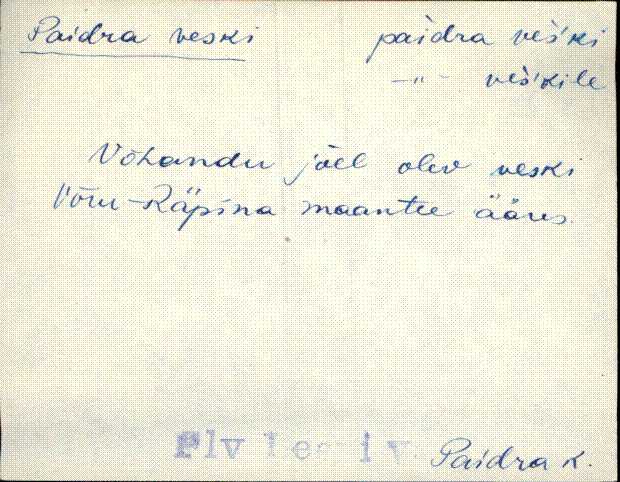 Paidra veski
pàidra veś'ki
—„— veš'kile
Võhandu jõel olev veski
Võru-Räpina maantee ääres.
Paidra k.